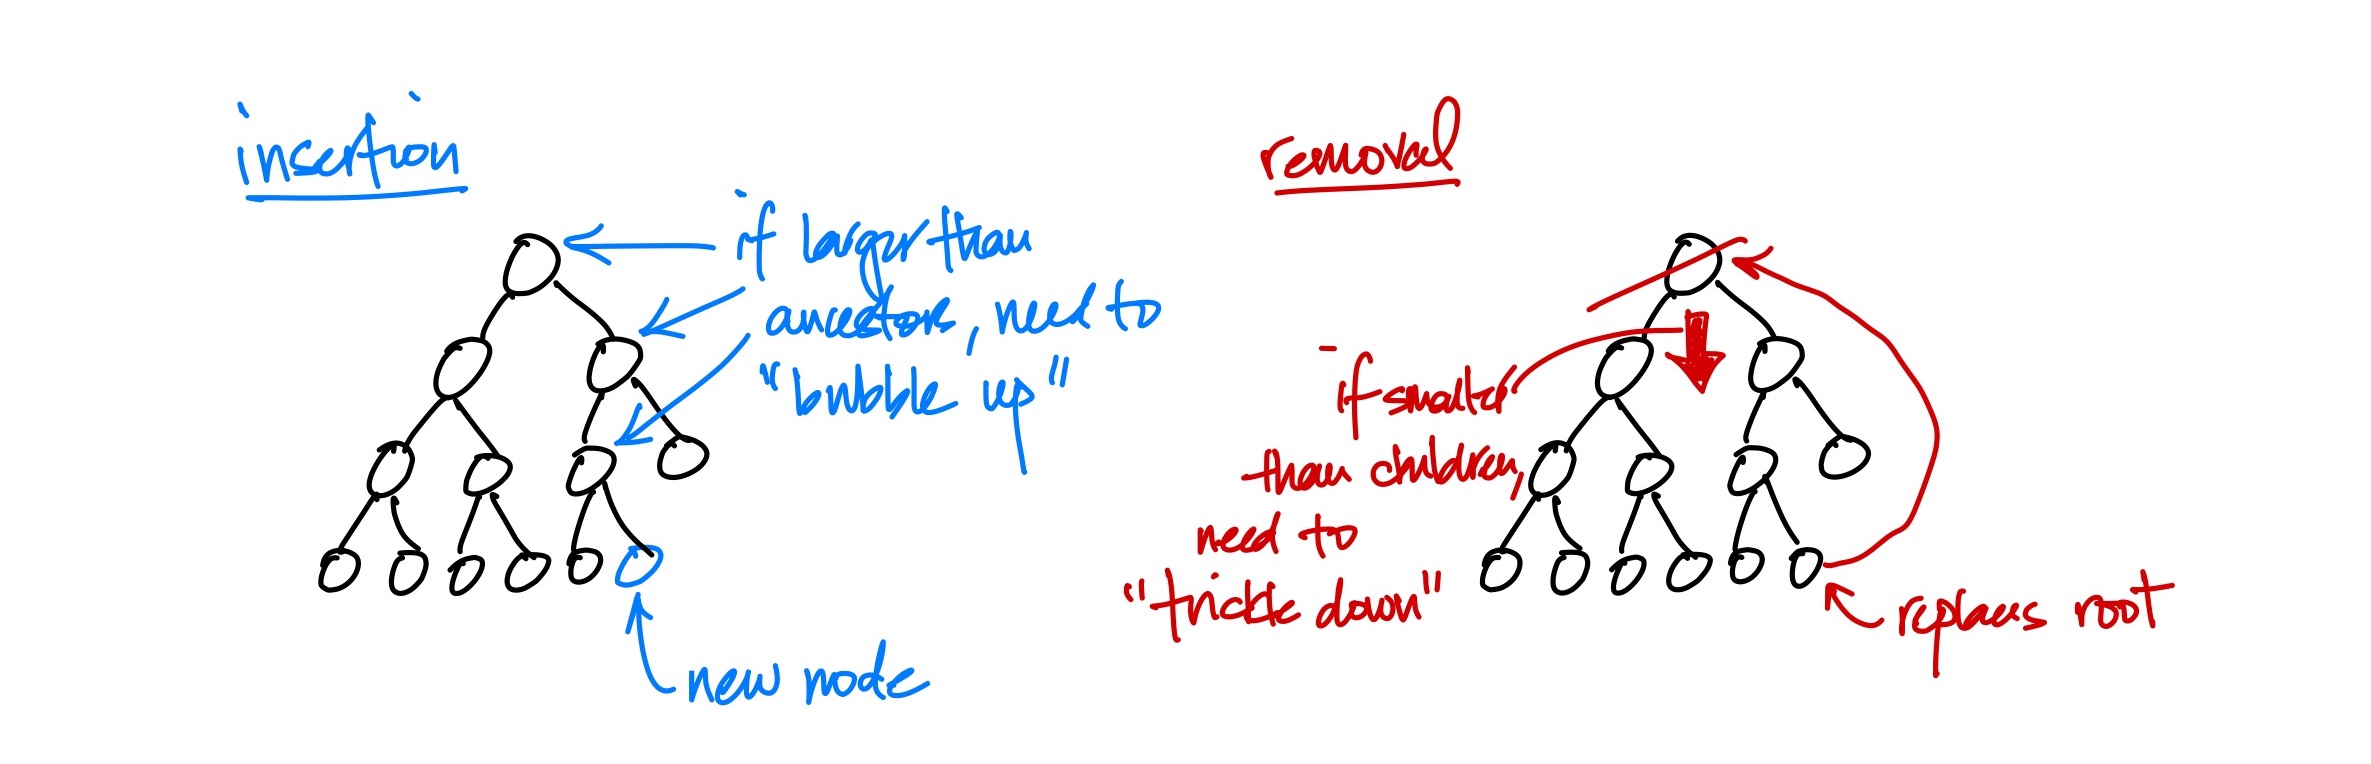 insertion
if larger than
ancestors, need to
"bubble up"
new node
removal
if smaller
than children,
need to
"trickle down"
replaces root